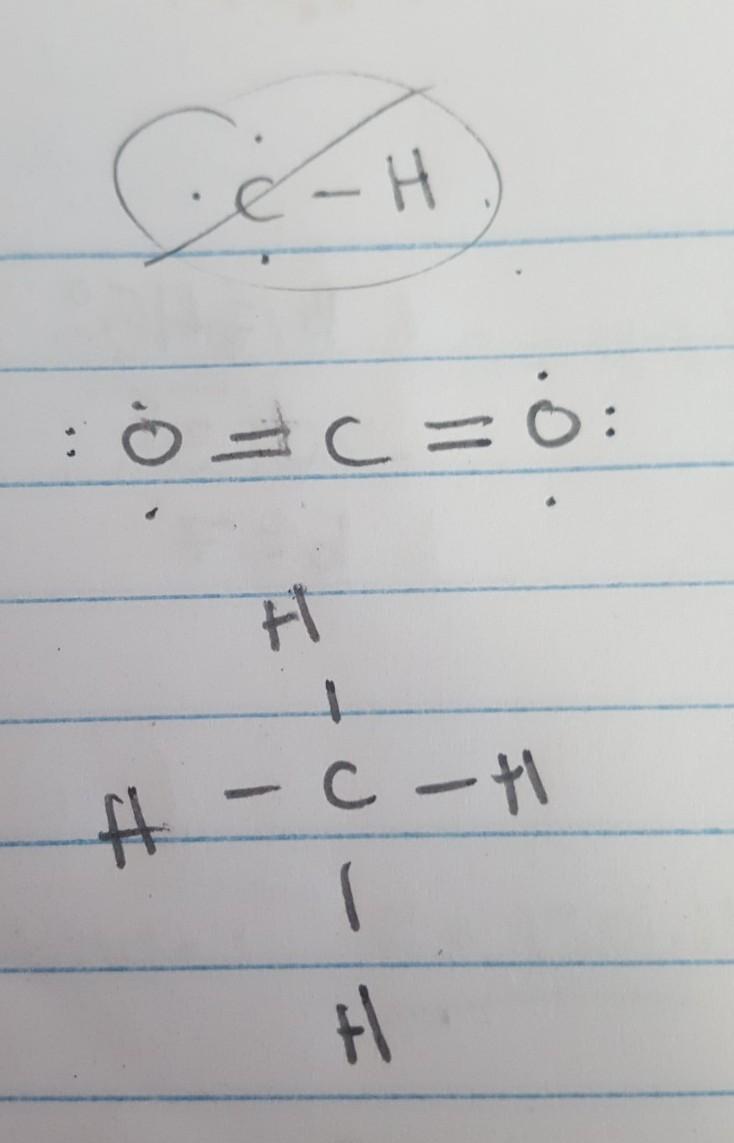 · C – H
: O = C = O :
H
|
H – C – H
|
H